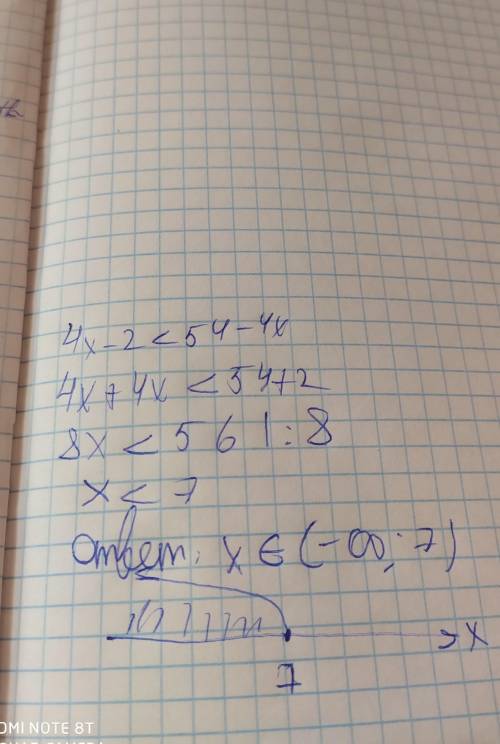 4x - 2 < 54 - 4x
4x + 4x < 54 + 2
8x < 56 | : 8
x < 7
Ответ: x ∈ (-∞; 7)
x
7
OMI NOTE 8T